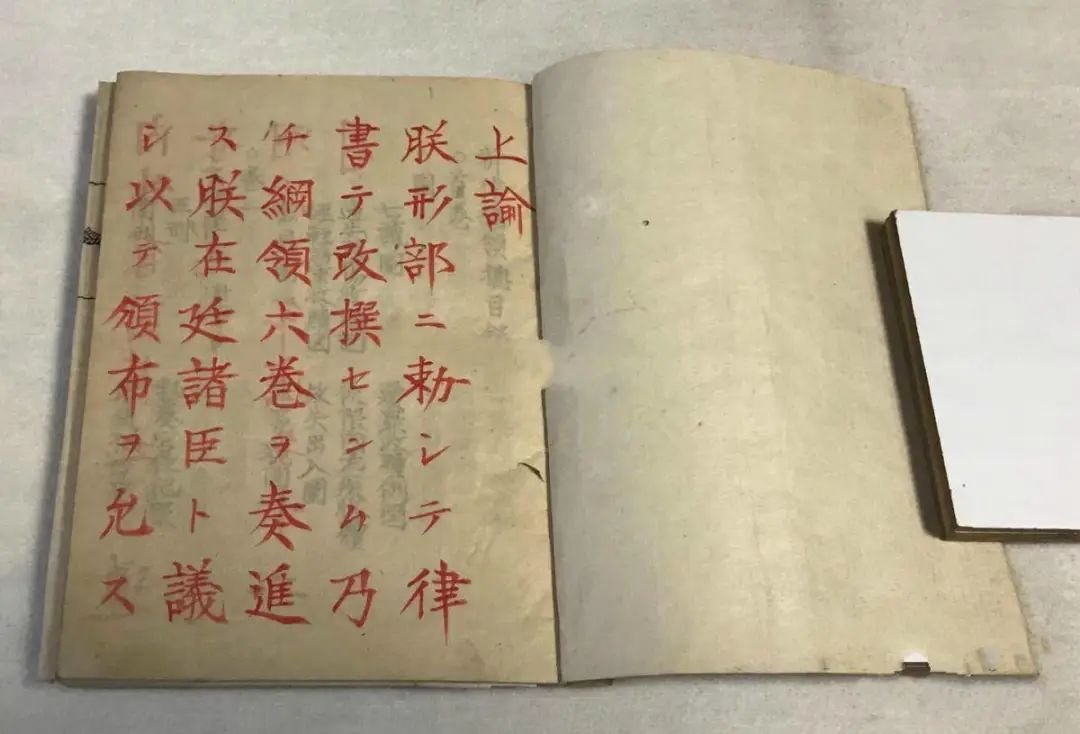 上諭
朕形部ニ勅シテ律
書テ改撰セシム乃
チ綱領六巻ヲ奏進
ス朕在廷諸臣ト議
シ以テ頒布ヲ允ス